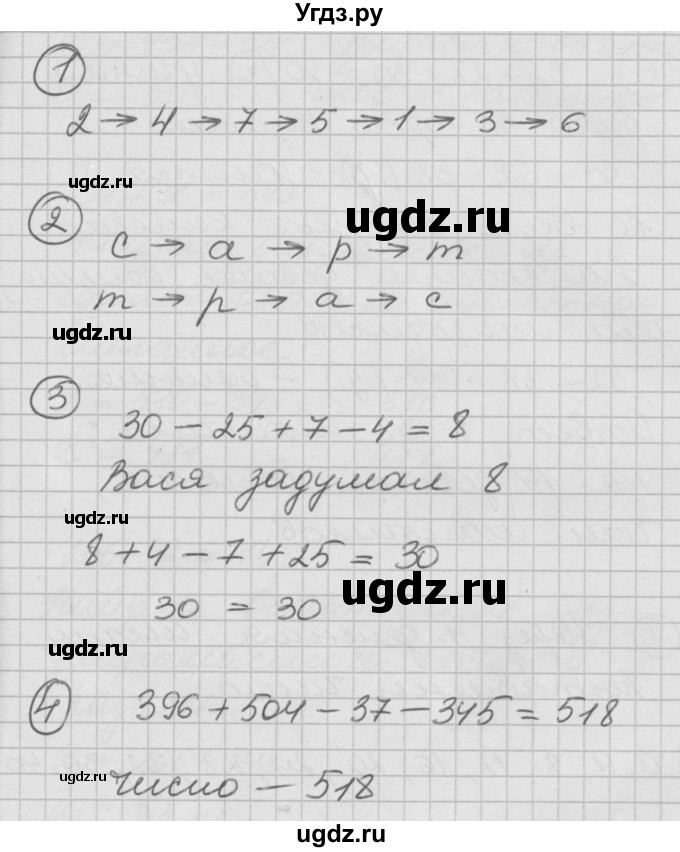 Угдз.ру
1
2 → 4 → 7 → 5 → 1 → 3 → 6
ugdz.ru
2
ugdz.ru
с → а → р → т
т → р → а → с
ugdz.ru
3
30 - 25 + 7 - 4 = 8
Вася задумал 8
ugdz.ru
8 + 4 - 7 + 25 = 30
ugdz.ru
30 = 30
ugdz.ru
4
396 + 504 - 37 - 345 = 518
ugdz.ru
число - 518
ugdz.ru